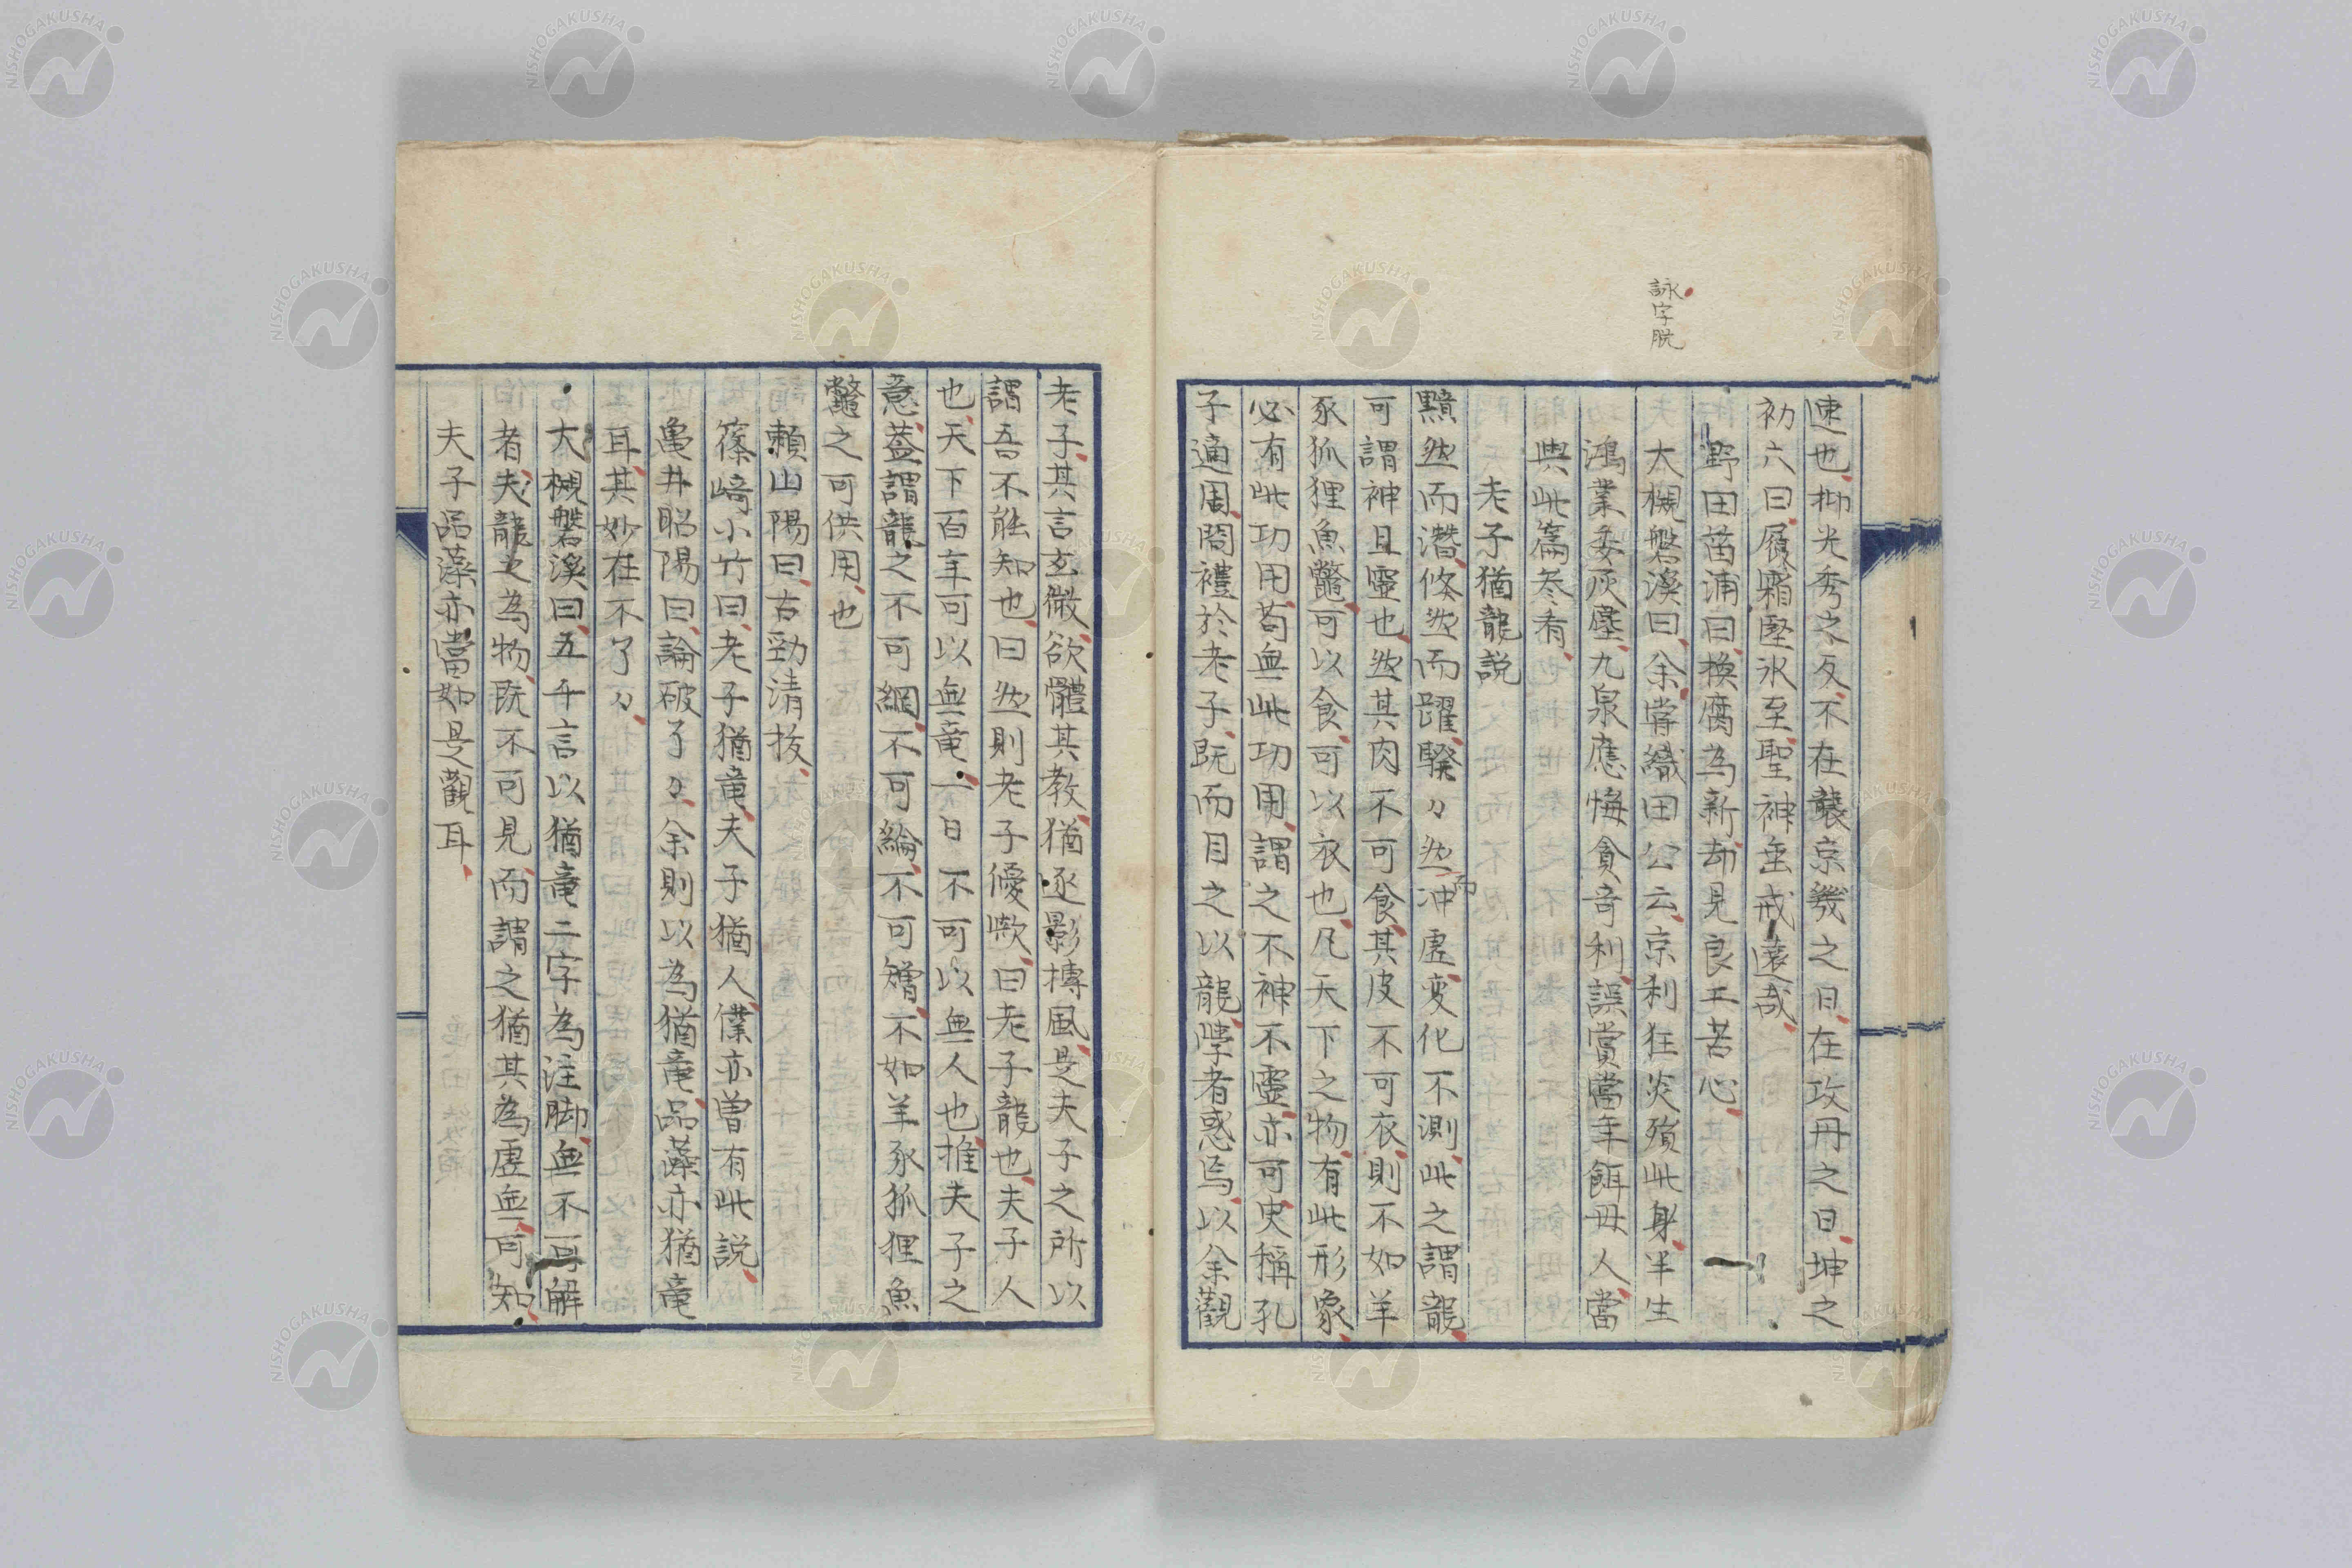 詠字脱
速也、抑光秀之反、不在襲京畿之日、在攻丹之日、坤之
初六曰、履霜堅氷至、聖神垂戒、遠哉、
野田笛浦曰、換腐為新、却見良工苦心、
大槻磐溪曰、余嘗織田公云、京利狂炎殞此身、半生
鴻業委灰塵、九泉應悔貪奇利、誤賞當年餌母人、當
與此篇叅看、
老子猶龍説
黯然而潜、倏然而躍、騤々然而冲虚、変化不測、此之謂龍、
可謂神且靈也、然其肉不可食、其皮不可衣、則不如羊
豕狐狸魚鼈、可以食、可以衣也、凡天下之物、有此形象、
必有此功用、苟無此功用、謂之不神不靈、亦可、史稱孔
子適周、問禮於老子、既而目之以龍、學者惑焉、以余觀
老子、其言玄微、欲體其教、猶逐影搏風、是夫子之所以
謂吾不能知也、曰、然則老子優歟、曰、老子龍也、夫子人
也、天下百年可以無竜、一日不可以無人也、推夫子之
意、蓋謂龍之不可網、不可綸、不可矰、不如羊豕狐狸魚
鼈之可供用、也
賴山陽曰、古勁清抜、
篠﨑小竹曰、老子猶竜、夫子猶人、僕亦曽有此説、
亀井昭陽曰、論破了々、余則以為猶竜品藻、亦猶竜
耳、其妙在不了々、
大槻磐溪曰、五千言以猶竜二字為注脚、無不可解
者、夫龍之為物、既不可見、而謂之猶其為虚無、可知、
夫子品藻亦當如是觀耳、